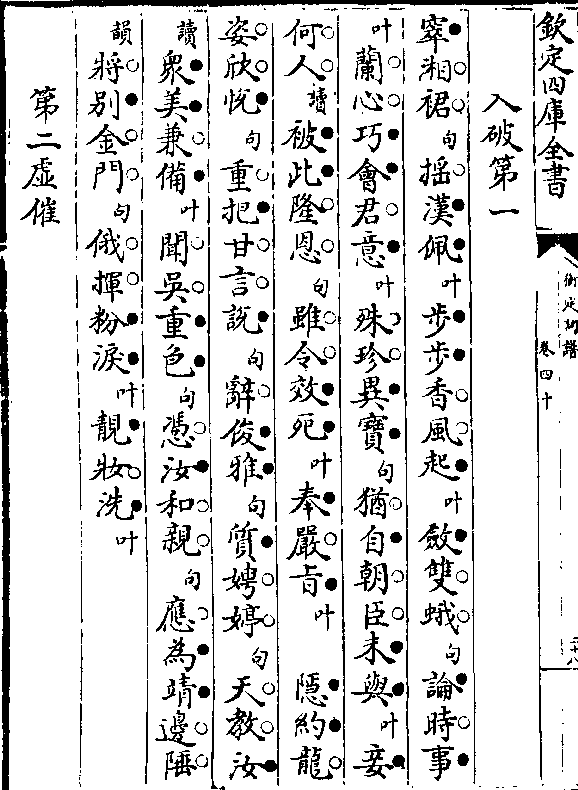 欽定四庫全書
御定詞譜
卷四十
入破第一
窣湘裙句揺漢佩叶步步香風起叶斂雙蛾句論時事
叶蘭心巧會君意叶殊珍異寳句猶自朝臣未與叶妾
何人讀被此隆恩句雖令效死叶奉嚴旨叶 隱約龍
姿欣悅句重把甘言說句辭俊雅句質娉婷句天教汝
讀衆美兼備叶聞吳重色句憑汝和親句應為靖邊陲
韻将别金門句俄揮粉淚叶靚妝洗叶
第二虛催